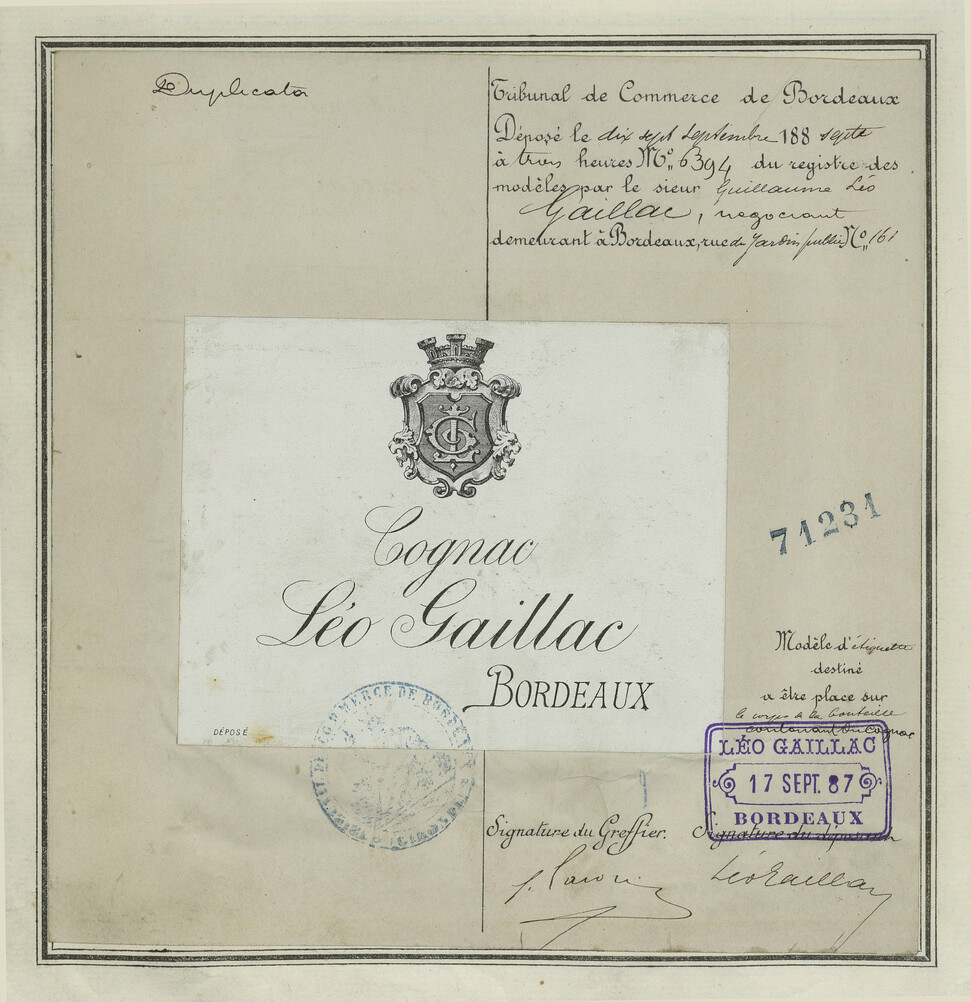 Duplicata
Tribunal de Commerce de Bordeaux
Déposé le dix sept Septembre 188 septe
à trois heures No. 6394 du registre des
modèles par le sieur Guillaume Léo
Gaillac, negociant
demeurant à Bordeaux, rue du Jardin public No. 161
Cognac
Léo Gaillac
BORDEAUX
DÉPOSÉ
71231
Modèle d'étiquette
destiné
a être place sur
le corps de la bouteille
contenant du cognac
LÉO GAILLAC
17 SEPT. 87
BORDEAUX
COMMERCE DE BORDEAUX
Signature du Greffier.
Signature du déposant
Léo Gaillac